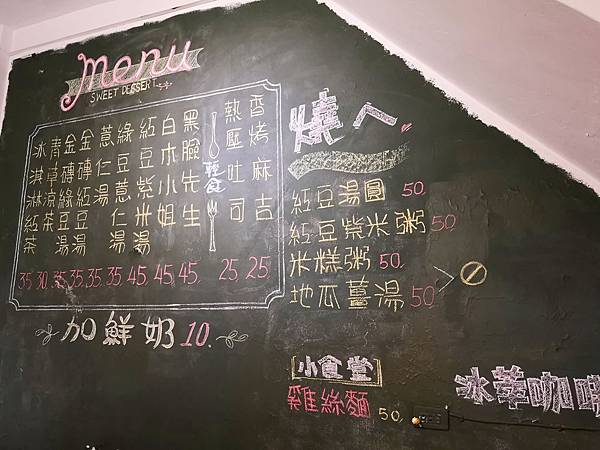 menu
SWEET DESSERT
香烤麻吉 25.
熱壓吐司 25.
輕食
黑臉先生 45.
白木小姐 45.
紅豆紫米湯 45.
綠豆薏仁湯 35.
薏仁湯 35.
金磚紅豆湯 35.
金磚綠豆湯 35.
青草涼茶 30.
冰淇淋紅茶 35.
加鮮奶 10.
燒ㄟ
紅豆湯圓 50.
紅豆紫米粥 50.
米糕粥 50.
地瓜薑湯 50.
小食堂
雞絲麵 50.
冰萃咖啡